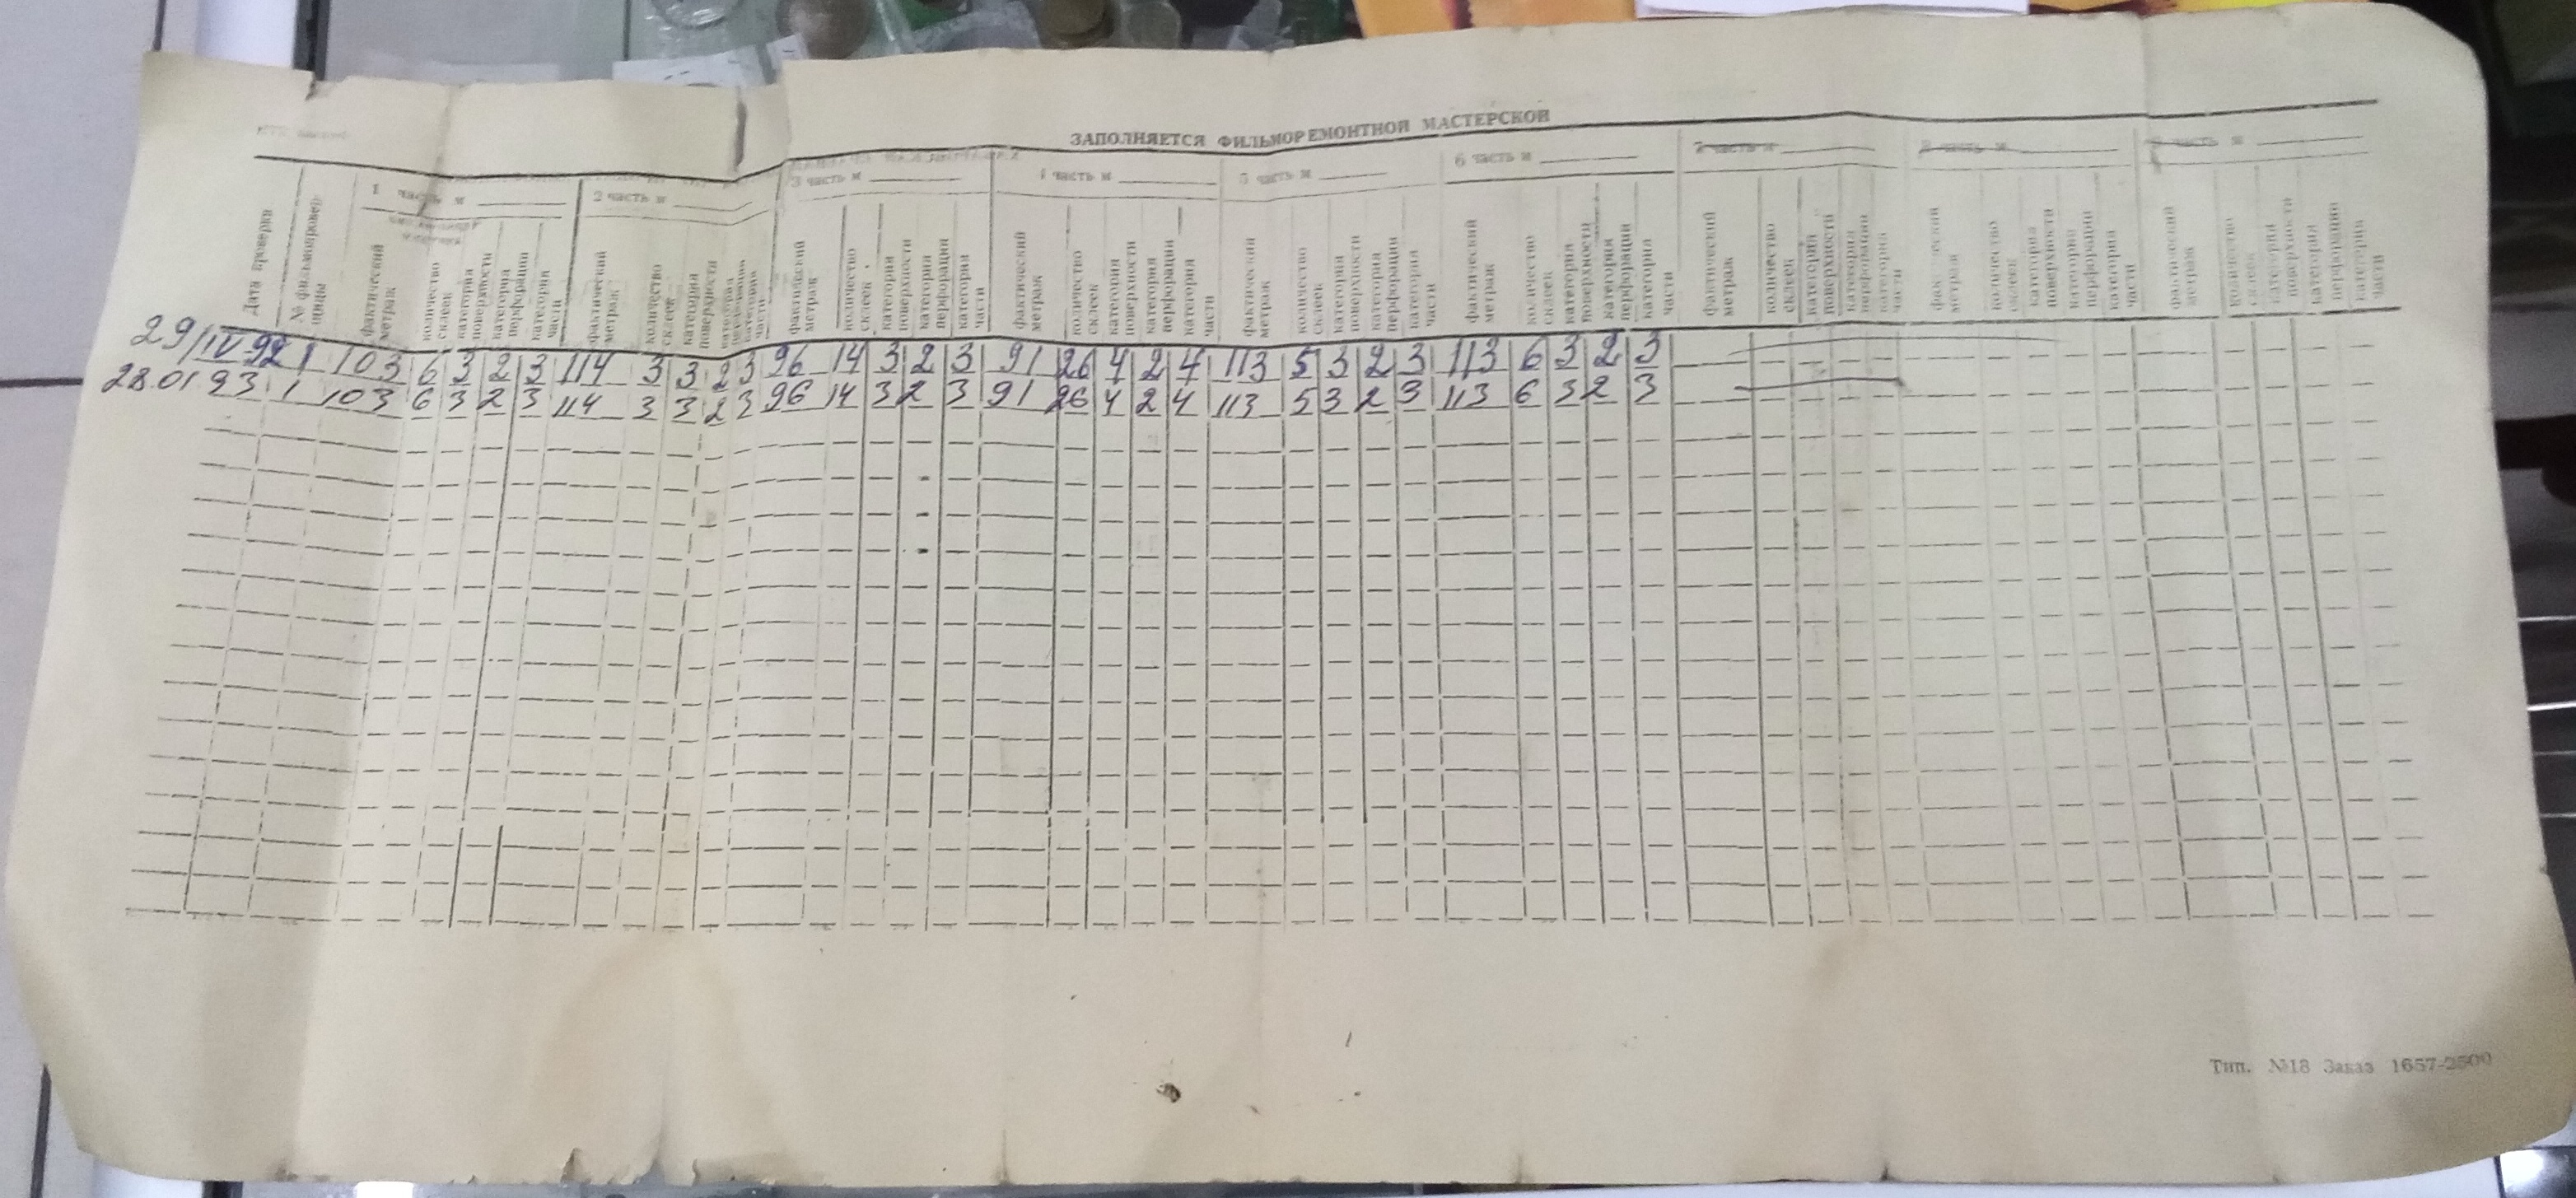 ЗАПОЛНЯЕТСЯ ФИЛЬМОРЕМОНТНОЙ МАСТЕРСКОЙ
1 часть м 2 часть м 3 часть м 4 часть м 5 часть м 6 часть м 7 часть м 8 часть м м
Дата проверки
№ фильмопровер-
щицы
фактический
метраж
количество
склеек
категория
поверхности
категория
перфорации
категория
части
фактический
метраж
количество
склеек
категория
поверхности
категория
части
фактический
метраж
количество
склеек
категория
поверхности
категория
перфорации
категория
части
фактический
метраж
количество
склеек
категория
поверхности
категория
перфорации
категория
части
фактический
метраж
количество
склеек
категория
поверхности
категория
перфорации
категория
части
фактический
метраж
количество
склеек
категория
поверхности
категория
перфорации
категория
части
фактический
метраж
количество
склеек
категория
поверхности
категория
перфорации
категория
части
метраж
количество
склеек
категория
поверхности
категория
перфорации
категория
части
фактический
метраж
количество
склеек
категория
поверхности
категория
перфорации
категория
части
29/IV 92 1 103 6 3 2 3 114 3 3 2 3 96 14 3 2 3 91 26 4 2 4 113 5 3 2 3 113 6 3 2 3
28.01 93 1 103 6 3 2 3 114 3 3 2 3 96 14 3 2 3 91 26 4 2 4 113 5 3 2 3 113 6 3 2 3
Тип. №18 Заказ 1657-2500